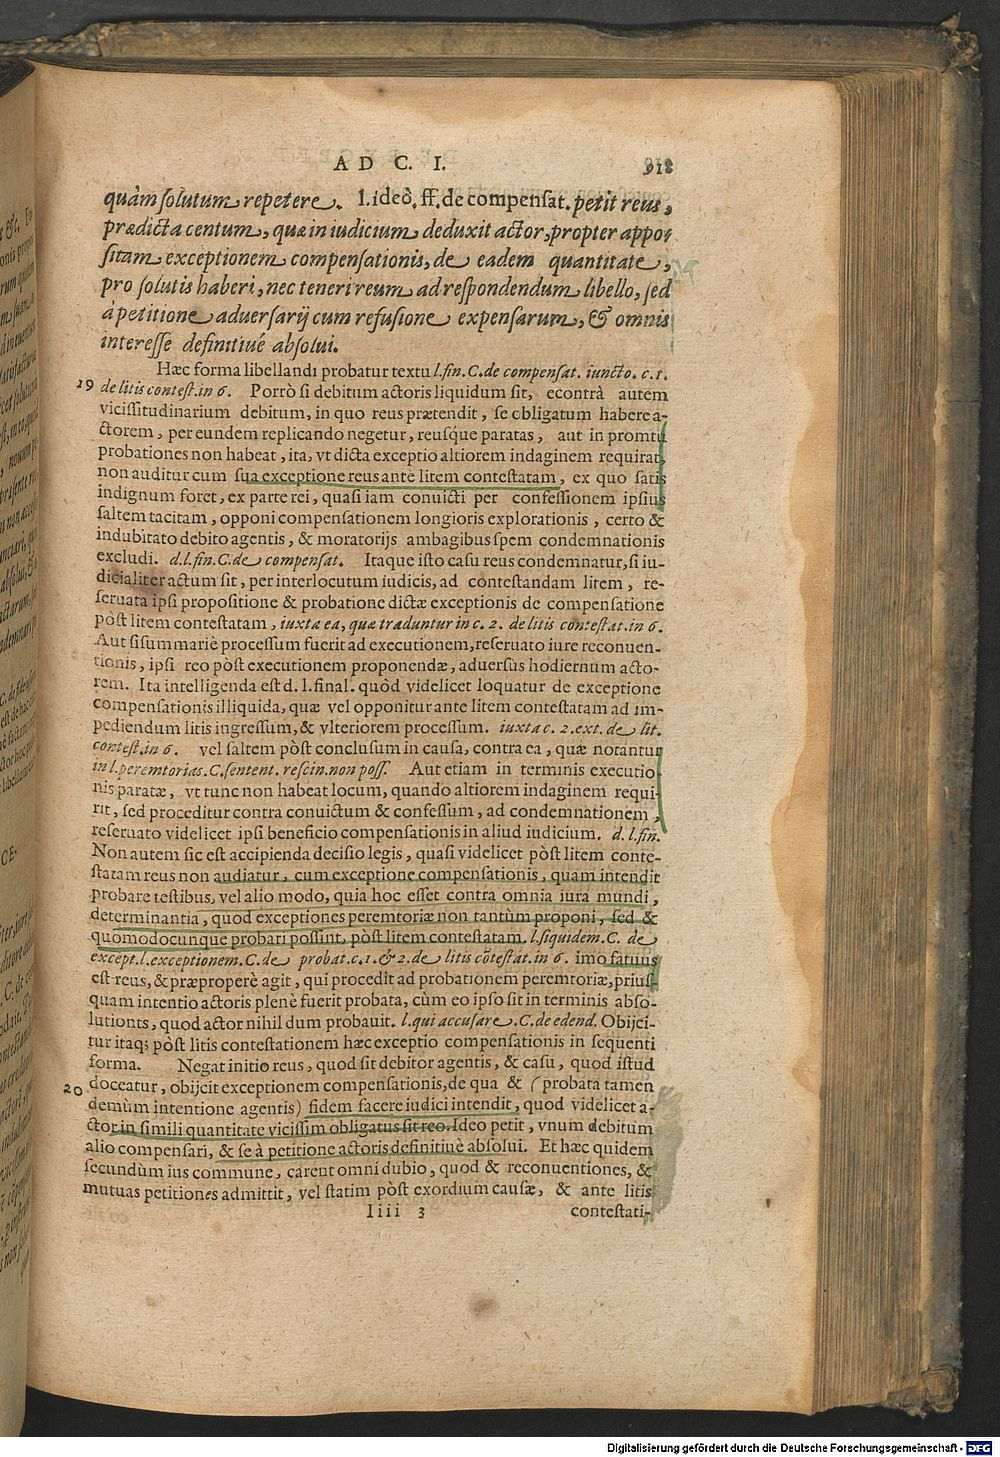 AD C. I.
918
quàm solutum repetere. l. ideò. ff. de compensat. petit reus,
prædicta centum, quæ in iudicium deduxit actor, propter appo-
sitam exceptionem compensationis, de eadem quantitate,
pro solutis haberi, nec teneri reum ad respondendum libello, sed
à petitione aduersarij cum refusione expensarum, & omnis
interesse definitiuè absolui.
Hæc forma libellandi probatur textu l. fin. C. de compensat. iuncto. c. 1.
19 de litis contest. in 6. Porrò si debitum actoris liquidum sit, econtrà autem
vicissitudinarium debitum, in quo reus prætendit, se obligatum habere a-
ctorem, per eundem replicando negetur, reusq́ue paratas, aut in promtu
probationes non habeat, ita, vt dicta exceptio altiorem indaginem requirat,
non auditur cum sua exceptione reus antè litem contestatam, ex quo satis
indignum foret, ex parte rei, quasi iam conuicti per confessionem ipsius
saltem tacitam, opponi compensationem longioris explorationis, certo &
indubitato debito agentis, & moratorijs ambagibus spem condemnationis
excludi. d. l. fin. C. de compensat. Itaque isto casu reus condemnatur, si iu-
dicialiter actum sit, per interlocutum iudicis, ad contestandam litem, re-
seruata ipsi propositione & probatione dictæ exceptionis de compensatione
pòst litem contestatam, iuxta ea, quæ traduntur in c. 2. de litis contestat. in 6.
Aut si summariè processum fuerit ad executionem, reseruato iure reconuen-
tionis, ipsi reo pòst executionem proponendæ, aduersùs hodiernum acto-
rem. Ita intelligenda est d. l. final. quòd videlicet loquatur de exceptione
compensationis illiquida, quæ vel opponitur ante litem contestatam ad im-
pediendum litis ingressum, & vlteriorem processum. iuxta c. 2. ext. de lit.
contest. in 6. vel saltem pòst conclusum in causa, contra ea, quæ notantur
in l. peremtorias. C. sentent. rescin. non poss. Aut etiam in terminis executio-
nis paratæ, vt tunc non habeat locum, quando altiorem indaginem requi-
rit, sed proceditur contra conuictum & confessum, ad condemnationem,
reseruato videlicet ipsi beneficio compensationis in aliud iudicium. d. l. fin.
Non autem sic est accipienda decisio legis, quasi videlicet pòst litem conte-
statam reus non audiatur, cum exceptione compensationis, quam intendit
probare testibus, vel alio modo, quia hoc esset contra omnia iura mundi,
determinantia, quod exceptiones peremtoriæ non tantùm proponi, sed &
quomodocunque probari possint, pòst litem contestatam. l. siquidem. C. de
except. l. exceptionem. C. de probat. c. 1. & 2. de litis cõtestat. in 6. imo fatuus
est reus, & præproperè agit, qui procedit ad probationem peremtoriæ, prius-
quam intentio actoris plenè fuerit probata, cùm eo ipso sit in terminis abso-
lutionis, quod actor nihil dum probauit. l. qui accusare. C. de edend. Obijci-
tur itaq; pòst litis contestationem hæc exceptio compensationis in sequenti
forma. Negat initio reus, quod sit debitor agentis, & casu, quod istud
20 doceatur, obijcit exceptionem compensationis, de qua & (probata tamen
demùm intentione agentis) fidem facere iudici intendit, quod videlicet a-
ctor in simili quantitate vicissim obligatus sit reo. Ideo petit, vnum debitum
alio compensari, & se à petitione actoris definitiuè absolui. Et hæc quidem
secundùm ius commune, carent omni dubio, quod & reconuentiones, &
mutuas petitiones admittit, vel statim pòst exordium causæ, & ante litis
Iiii 3
contestati-
Digitalisierung gefördert durch die Deutsche Forschungsgemeinschaft - DFG